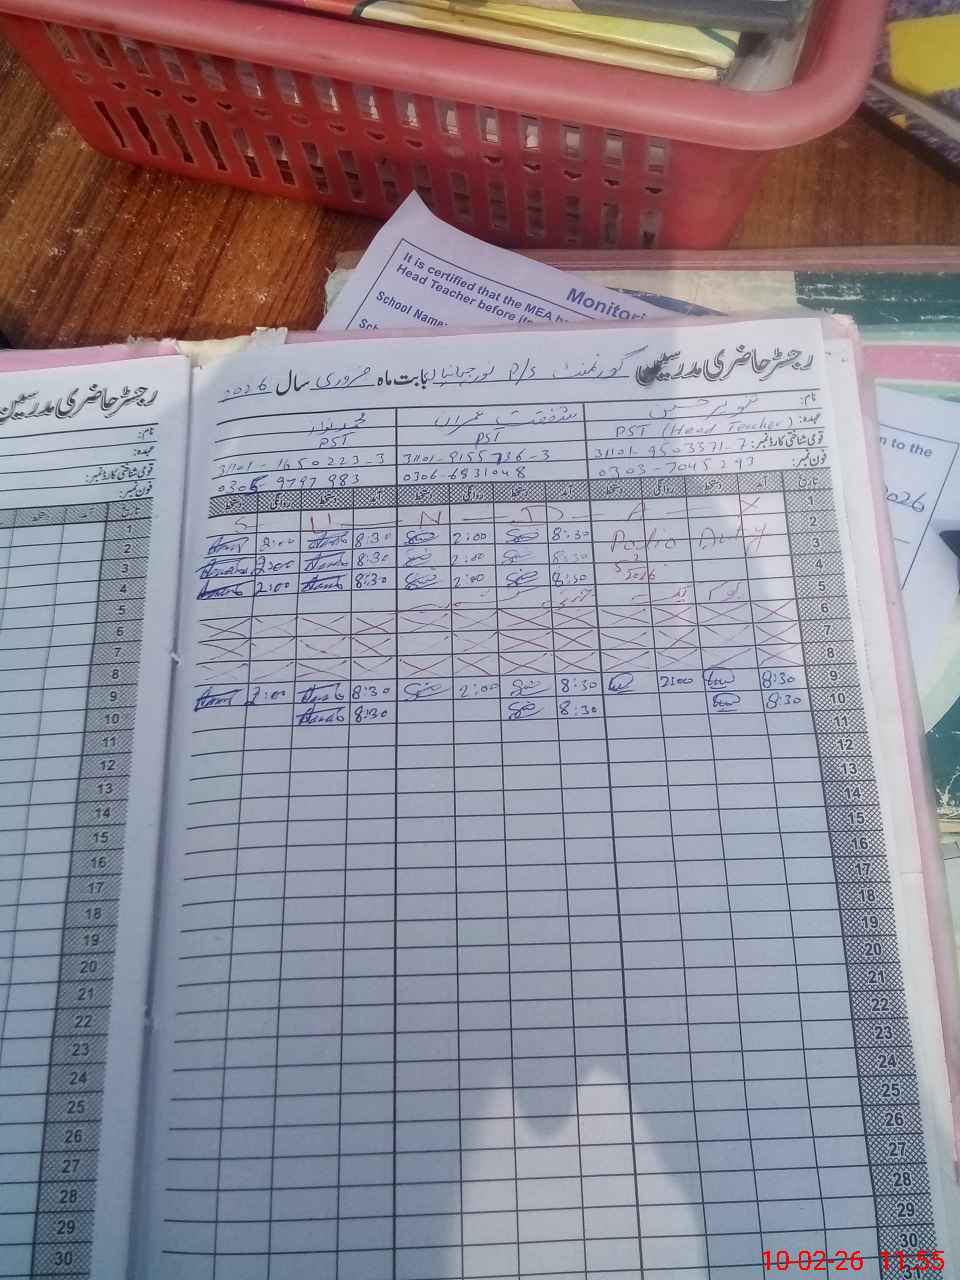 It is certified that the MEA
Head Teacher before its
Monitori
School Name:
n to the
2026
رجسٹر حاضری مدرسین
رجسٹر حاضری مدرسین گورنمنٹ P/S نور جہانیاں بابت ماہ فروری سال 2026
نام:
عہدہ:
قومی شناختی کارڈ نمبر:
فون نمبر:
نام: تنویر حسین شفقت عمران محمد نواز
عہدہ: PST (Head Teacher) PST PST
قومی شناختی کارڈ نمبر: 31101-9503371-7 31101-9155736-3 31101-1650223-3
فون نمبر: 0303-7045293 0306-6831048 0305 9797983
تاریخ آمد دستخط روانگی دستخط آمد دستخط روانگی دستخط آمد دستخط روانگی دستخط
1 S U N D A Y
2 Polio Duty 8:30 2:00 8:30 2:00
3 8:30 2:00 8:30 2:00
4 2/2026 8:30 2:00 8:30 2:00
5
6
7
8
9 8:30 2:00 8:30 2:00 8:30 2:00
10 8:30 8:30 8:30
11
12
13
14
15
16
17
18
19
20
21
22
23
24
25
26
27
28
29
30
31
1
2
3
4
5
6
7
8
9
10
11
12
13
14
15
16
17
18
19
20
21
22
23
24
25
26
27
28
29
30
10-02-26 11:55